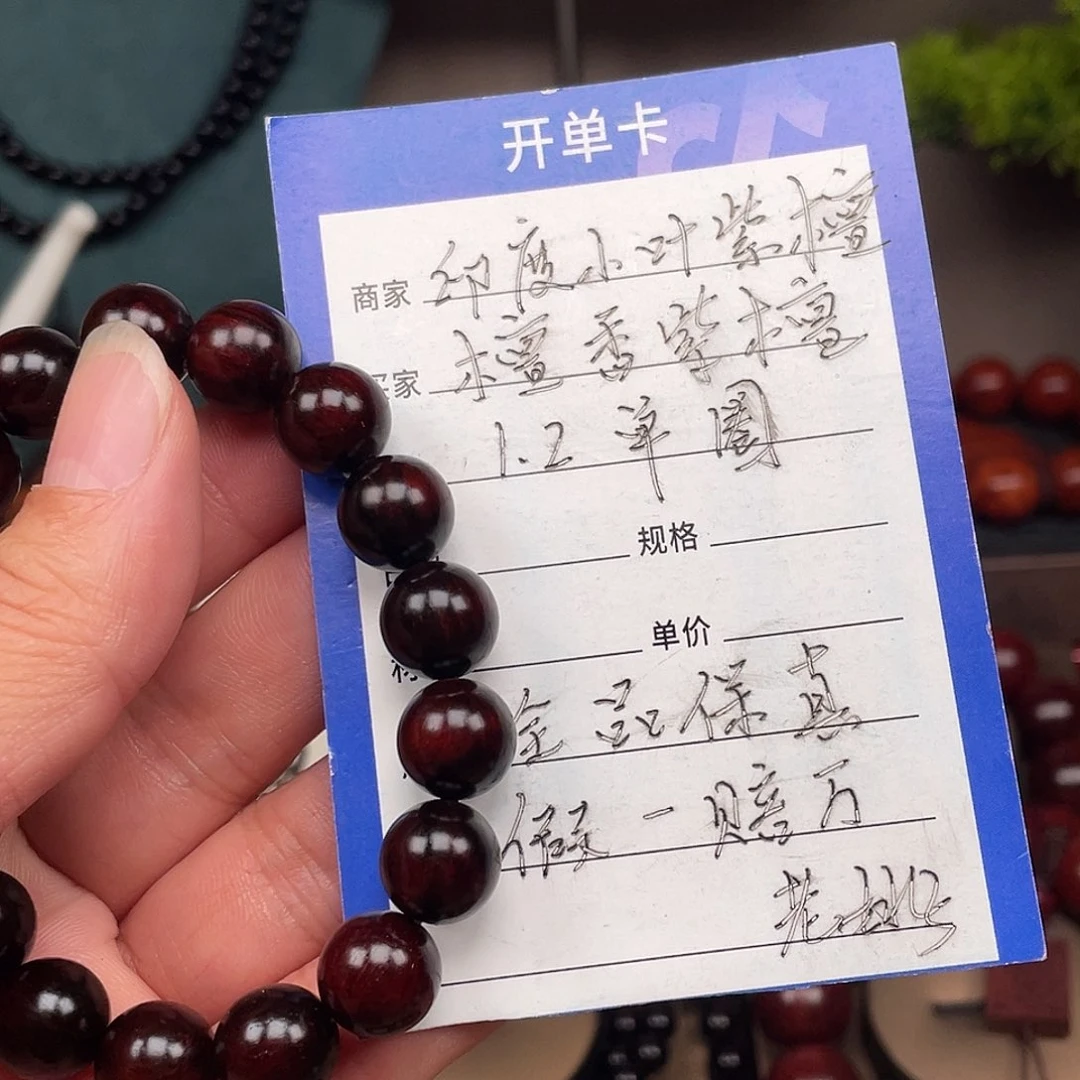 开单卡
商家 印度小叶紫檀
买家 檀香紫檀
1.2 单圈
规格
单价
全品保真
假一赔万